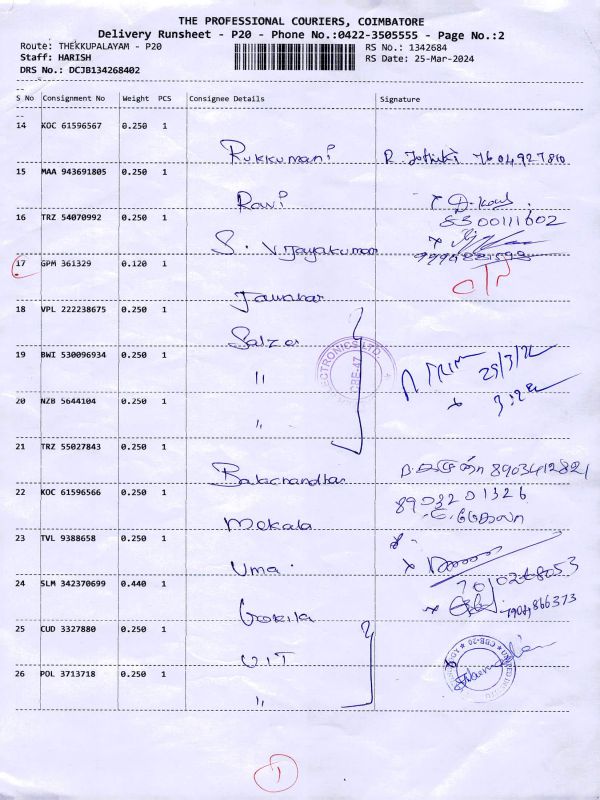 THE PROFESSIONAL COURIERS, COIMBATORE
Delivery Runsheet - P20 - Phone No.:0422-3505555 - Page No.:2
Route: THEKKUPALAYAM - P20
RS No.: 1342684
Staff: HARISH
RS Date: 25-Mar-2024
DRS No.: DCJB134268402
S No Consignment No Weight PCS Consignee Details Signature
14 KOC 61596567 0.250 1
Rukkumani R. 7604927810
15 MAA 943691805 0.250 1
Rani
16 TRZ 54070992 0.250 1 8300111602
S. Vijayakumar
17 GPM 361329 0.120 1
Jawahar
18 VPL 222238675 0.250 1
Salzer
19 BWI 530096934 0.250 1
"
20 NZB 5644104 0.250 1
"
21 TRZ 55027843 0.250 1
Balachandhar 8903412821
22 KOC 61596566 0.250 1 8903201326
Mekala
23 TVL 9388658 0.250 1
Uma
24 SLM 342370699 0.440 1 7010268053
Gokila 7904866373
25 CUD 3327880 0.250 1
UIT
26 POL 3713718 0.250 1
"
1